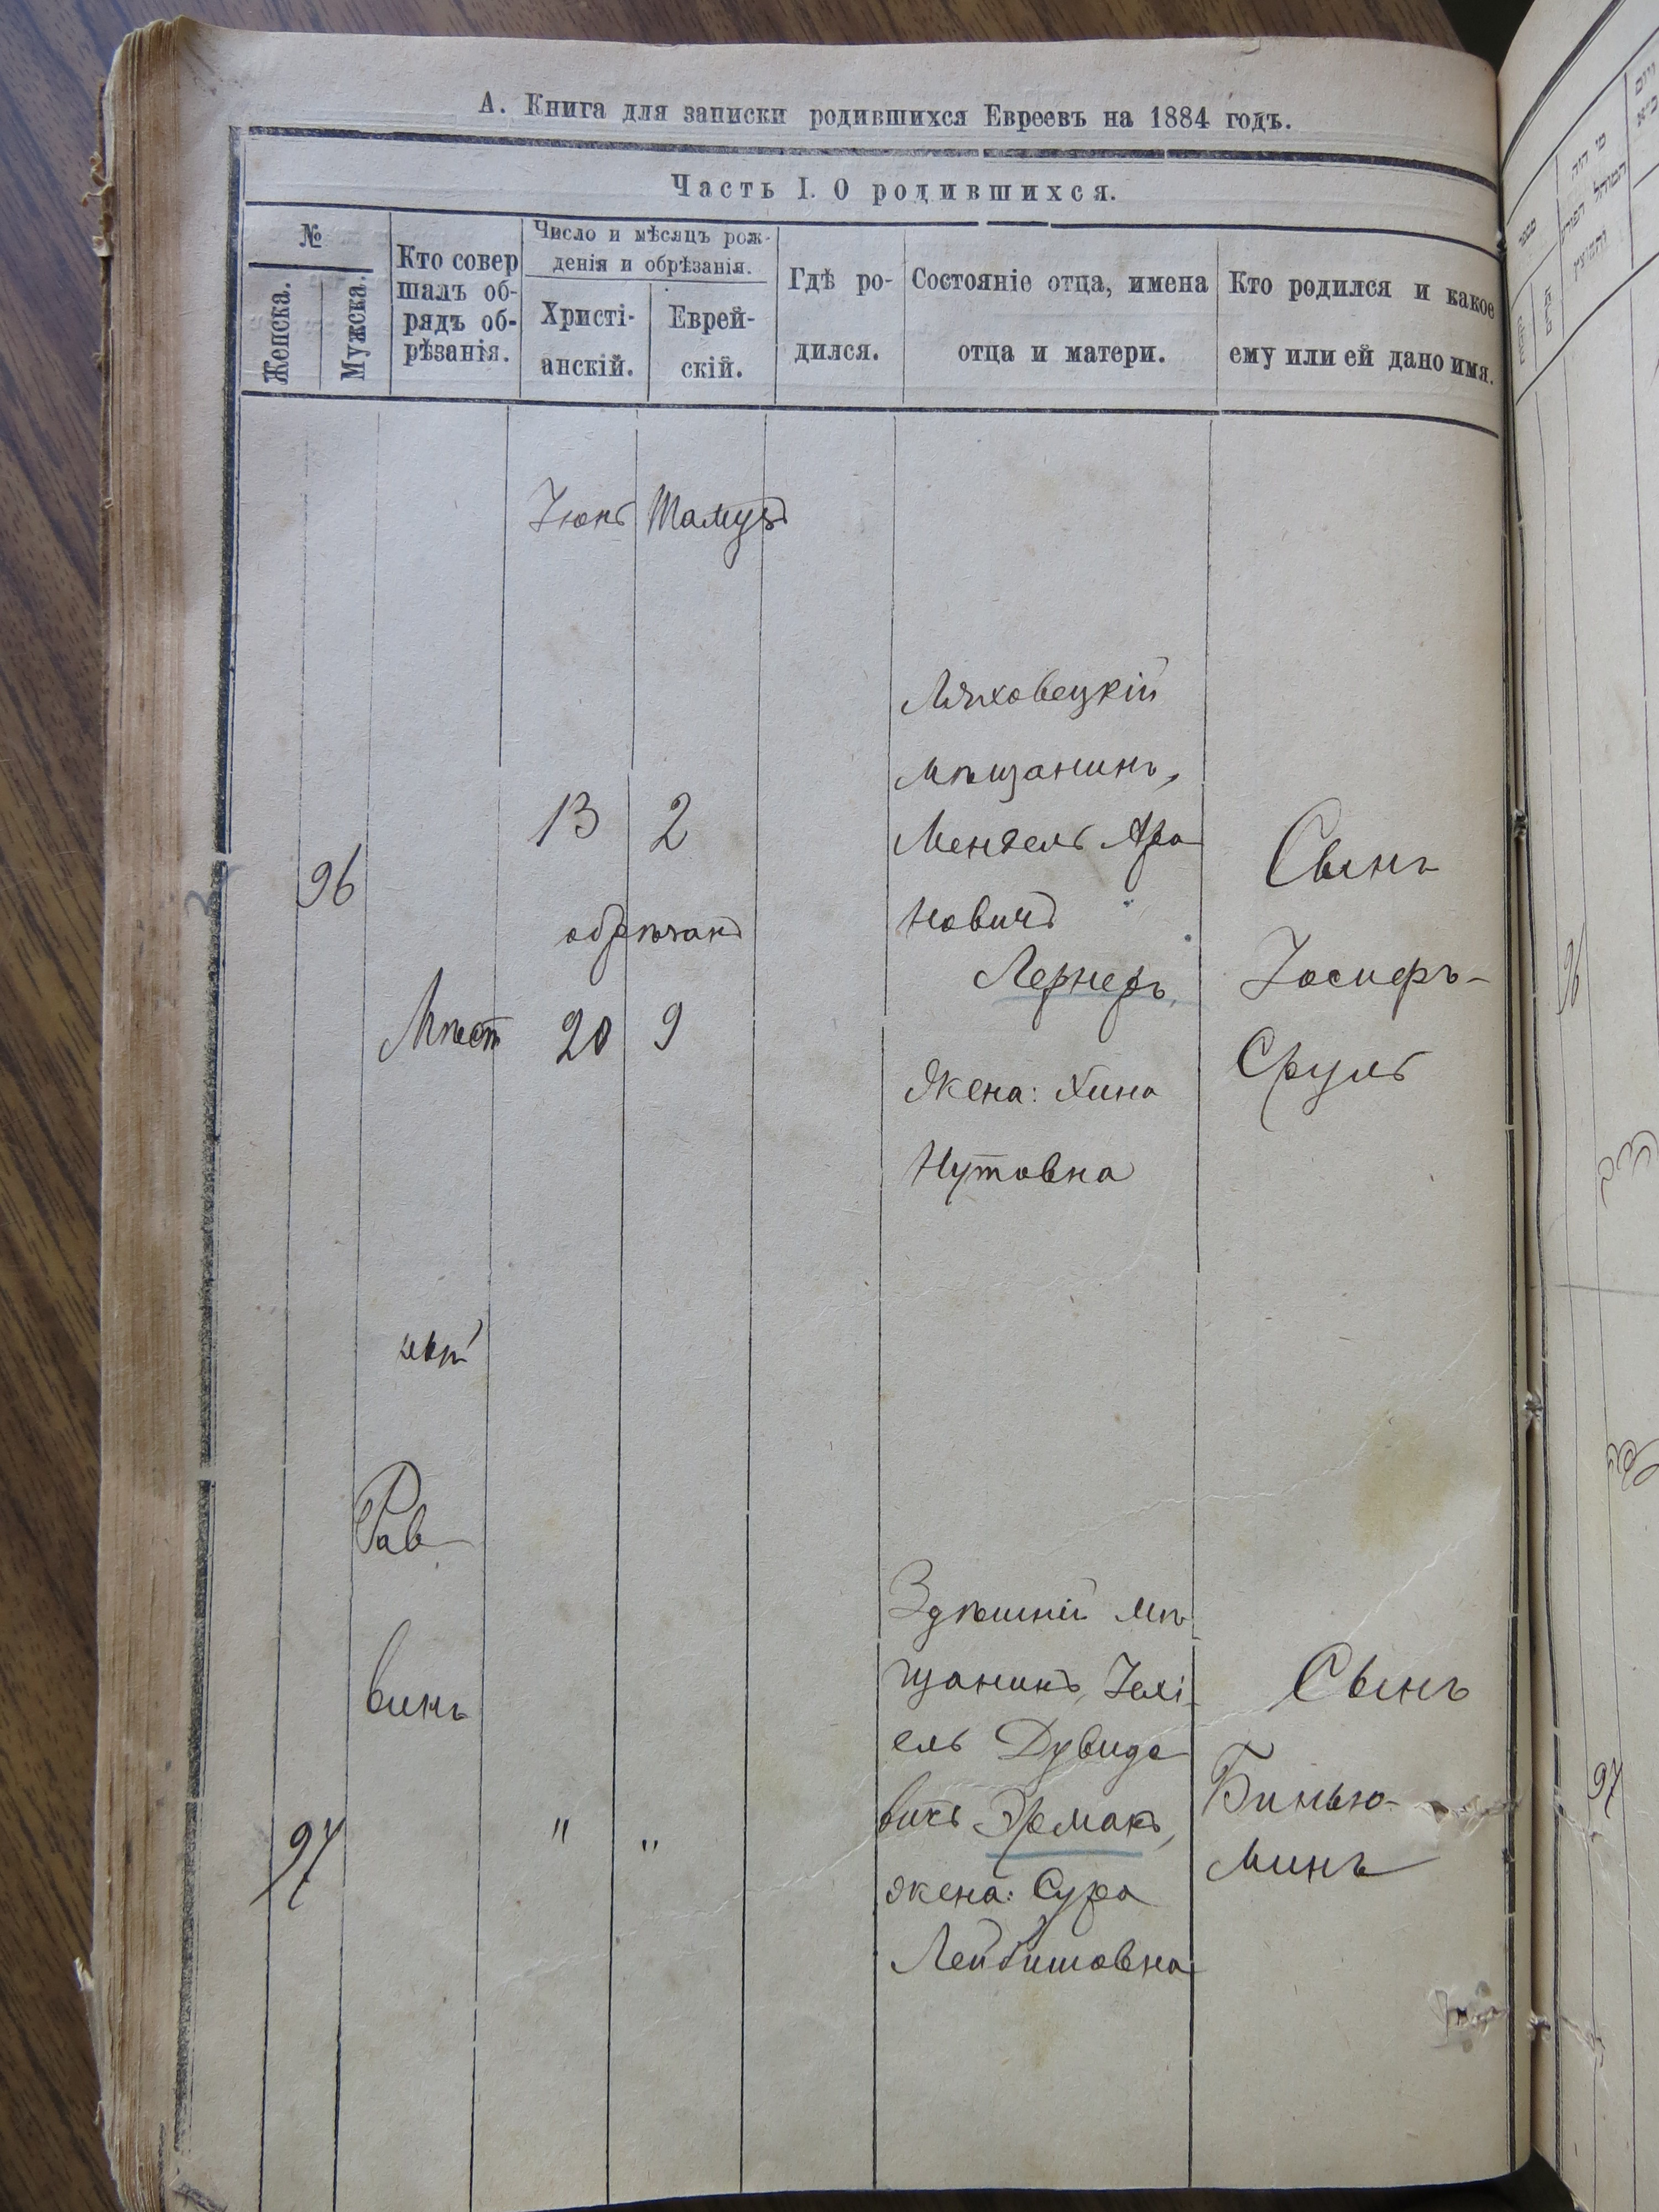 А. Книга для записки родившихся Евреевъ на 1884 годъ.
Часть I. О родившихся.
№
Женска.
Мужска.
Кто совер
шалъ об-
рядъ об-
рѣзанія.
Число и мѣсяцъ рож-
денія и обрѣзанія.
Христі-
анскій.
Еврей-
скій.
Гдѣ ро-
дился.
Состояніе отца, имена
отца и матери.
Кто родился и какое
ему или ей дано имя.
Іюнь Тамузъ
96
13 2
обрѣзанъ
20 9
Мѣст
ный
Рав
винъ
Ляховецкій
мѣщанинъ,
Мендель Аро
новичъ
Лернеръ,
Жена: Хина
Нутовна
Сынъ
Іосифъ-
Сруль
97
" "
Здѣшній мѣ
щанинъ, Іехі
ель Дувидо
вичъ Эрмакъ,
жена: Сура
Лейбишовна
Сынъ
Бинью-
минъ
96
97